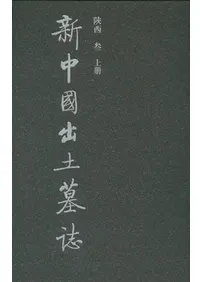 陝西 叁 上册
新中國出土墓誌